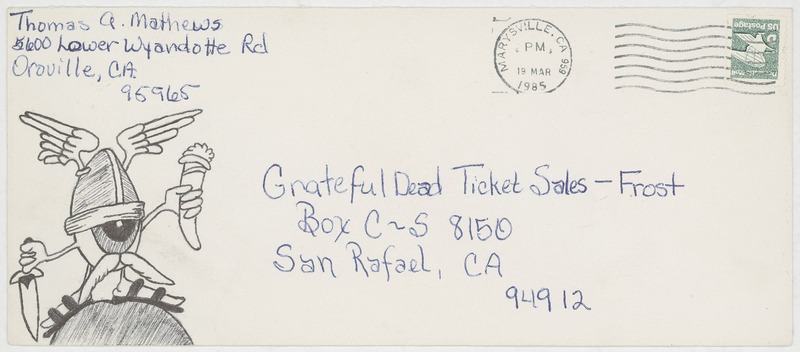 Thomas A. Mathews
5600 Lower Wyandotte Rd
Oroville, CA
95965
MARYSVILLE, CA 959
PM
19 MAR
1985
US Postage
Grateful Dead Ticket Sales - Frost
Box C-S 8150
San Rafael, CA
94912